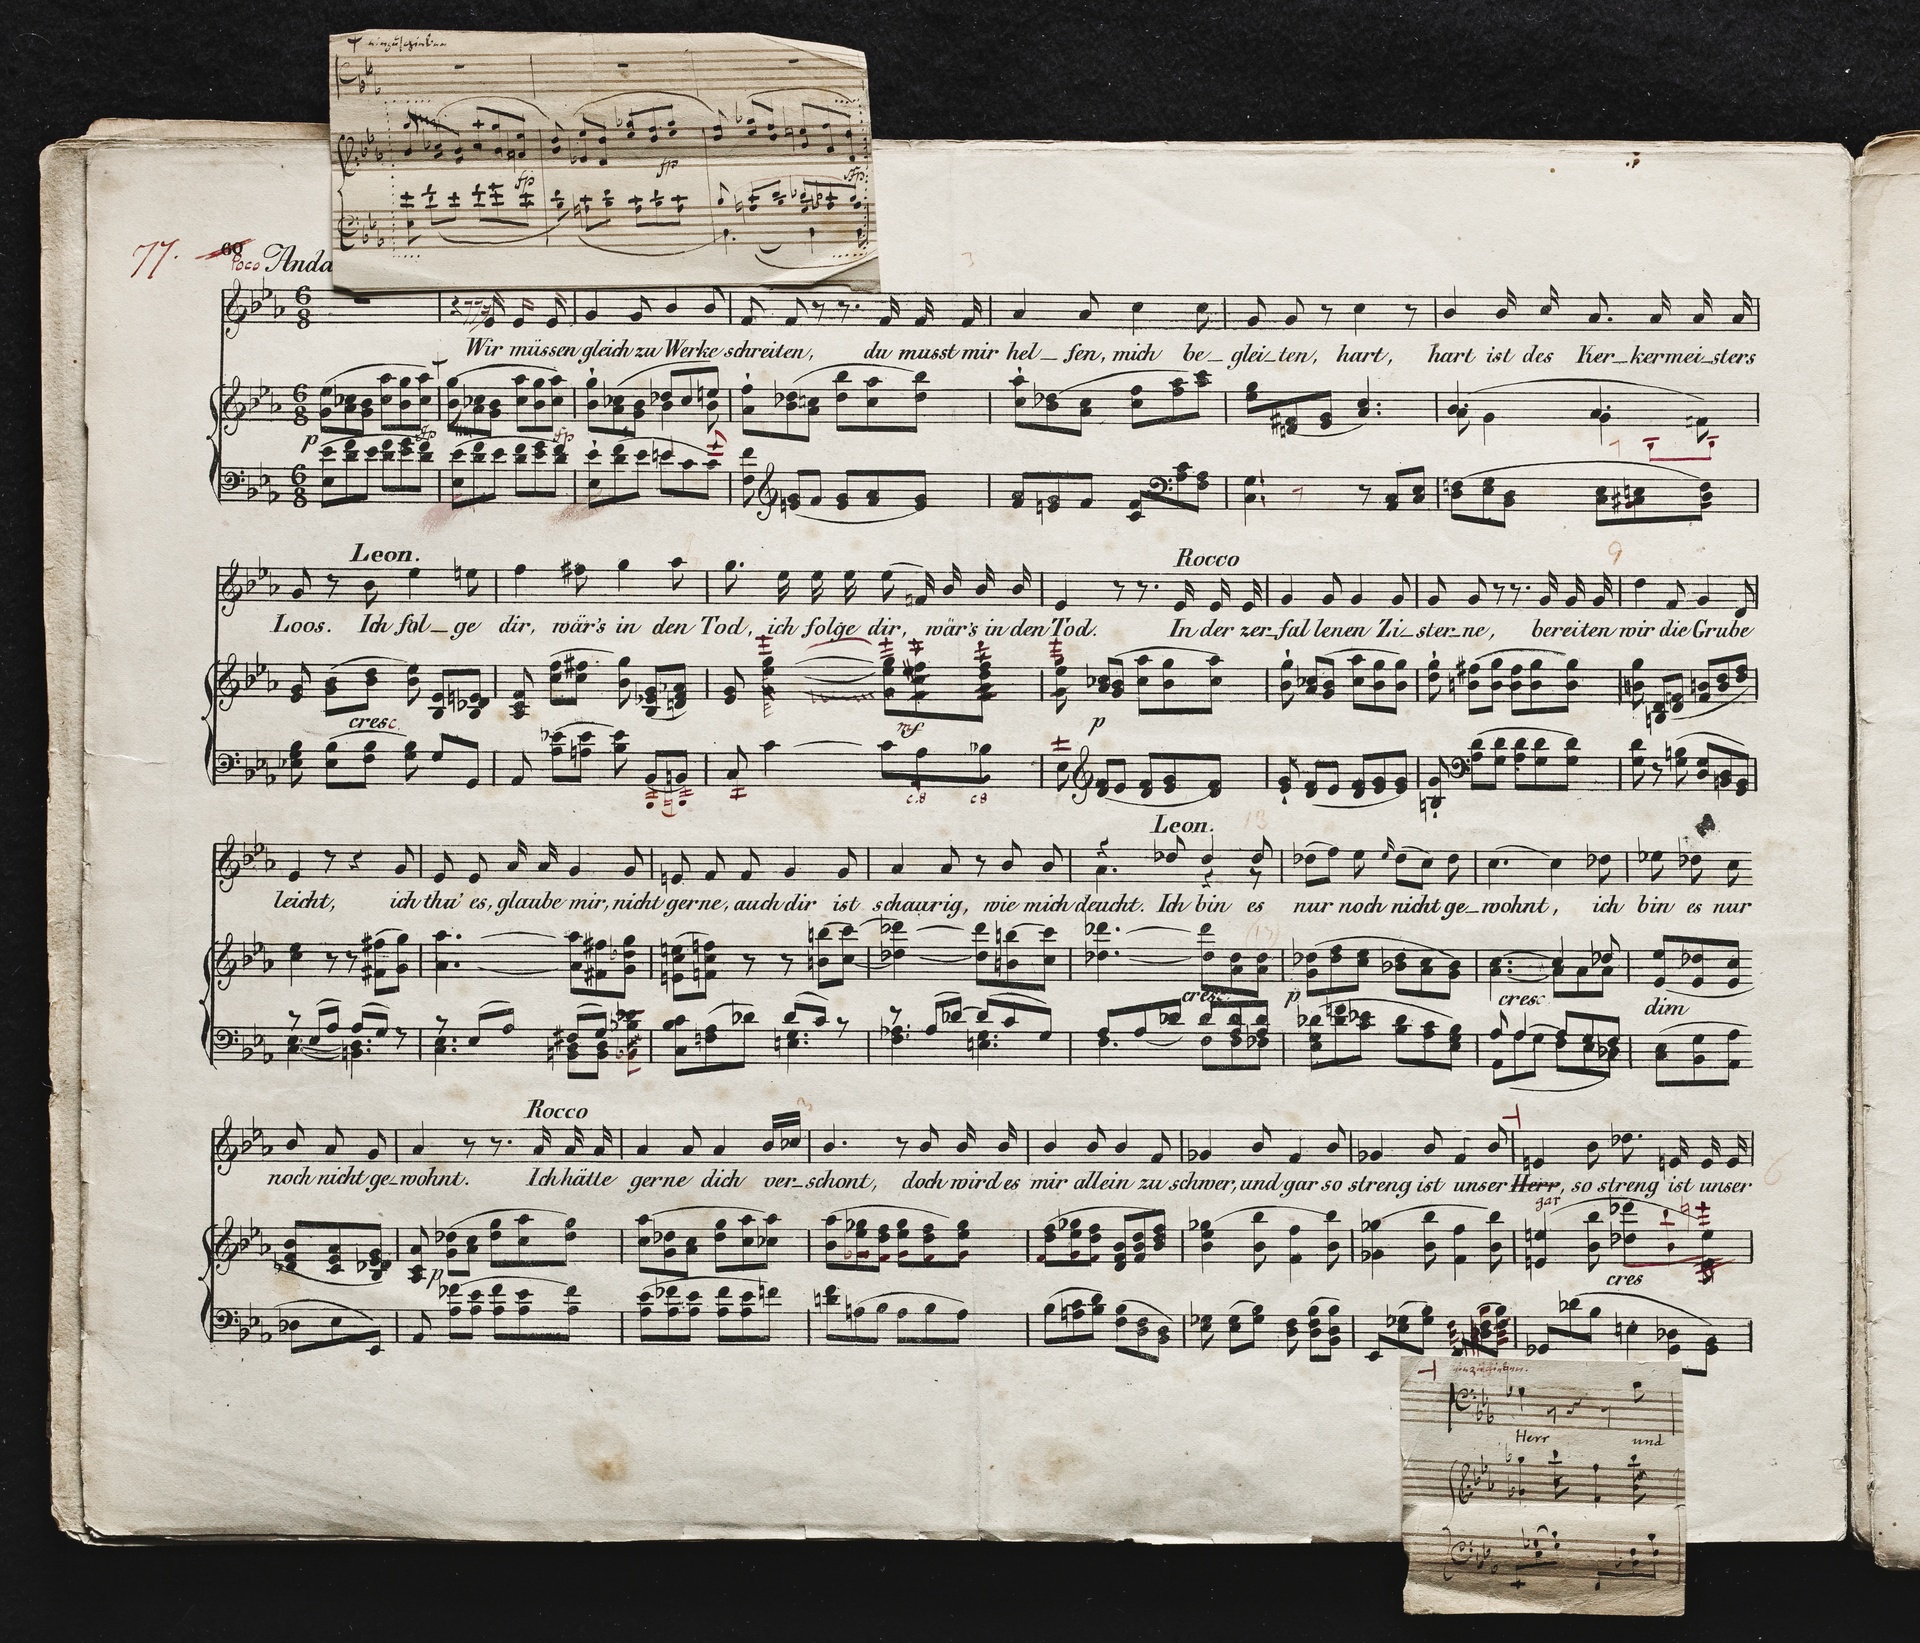 fp
fp
sfp
77. 60
Poco Anda
3
Wir müssen gleich zu Werke schreiten, du musst mir hel_fen, mich be_glei_ten, hart, hart ist des Ker_kermei_sters
p fp fp
Leon. Rocco 9
Loos. Ich fol_ge dir, wär's in den Tod, ich folge dir, wär's in den Tod. In der zer_fallenen Zi_ster_ne, bereiten wir die Grube
cresc. mf p
c.8 c8
Leon. 13
leicht, ich thu' es, glaube mir, nicht gerne, auch dir ist schaurig, wie mich deucht. Ich bin es nur noch nicht ge_wohnt, ich bin es nur
cresc. p cresc. dim
Rocco 3
noch nicht ge_wohnt. Ich hätte gerne dich ver_schont, doch wird es mir allein zu schwer, und gar so streng ist unser Herr, so streng ist unser
gar
6
p cres
Herr und